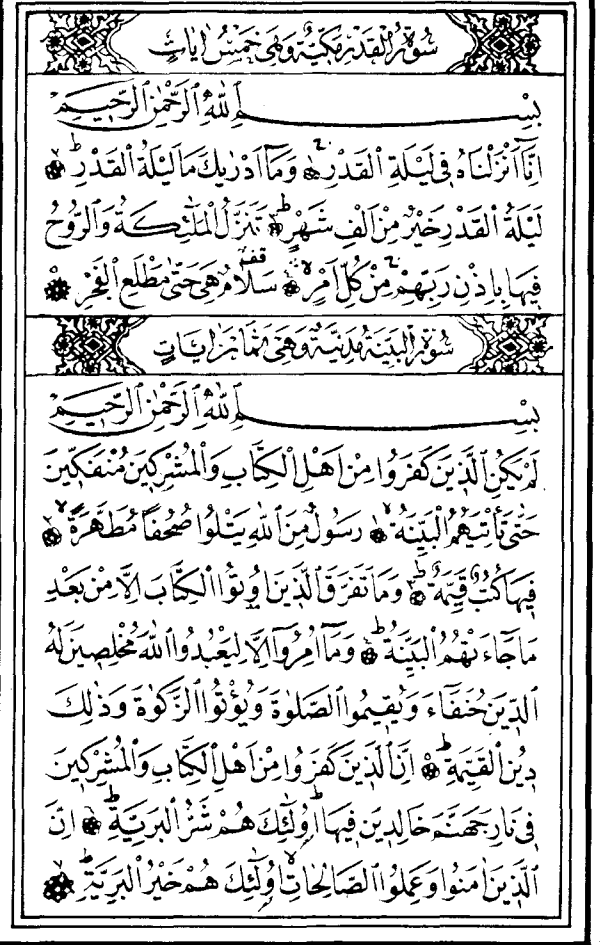 سُورَةُ الْقَدْرِ مَكِّيَّةٌ وَهِيَ خَمْسُ اٰيَاتٍ
بِسْمِ اللّٰهِ الرَّحْمٰنِ الرَّحِيمِ
اِنَّٓا اَنْزَلْنَاهُ فِي لَيْلَةِ الْقَدْرِ ۞ وَمَٓا اَدْرٰيكَ مَا لَيْلَةُ الْقَدْرِ ۞
لَيْلَةُ الْقَدْرِ خَيْرٌ مِنْ اَلْفِ شَهْرٍ ۞ تَنَزَّلُ الْمَلٰٓئِكَةُ وَالرُّوحُ
فِيهَا بِاِذْنِ رَبِّهِمْ مِنْ كُلِّ اَمْرٍ ۞ سَلَامٌ هِيَ حَتّٰى مَطْلَعِ الْفَجْرِ ۞
سُورَةُ الْبَيِّنَةِ مَدَنِيَّةٌ وَهِيَ ثَمَانُ اٰيَاتٍ
بِسْمِ اللّٰهِ الرَّحْمٰنِ الرَّحِيمِ
لَمْ يَكُنِ الَّذِينَ كَفَرُوا مِنْ اَهْلِ الْكِتَابِ وَالْمُشْرِكِينَ مُنْفَكِّينَ
حَتّٰى تَأْتِيَهُمُ الْبَيِّنَةُ ۞ رَسُولٌ مِنَ اللّٰهِ يَتْلُوا صُحُفًا مُطَهَّرَةً ۞
فِيهَا كُتُبٌ قَيِّمَةٌ ۞ وَمَا تَفَرَّقَ الَّذِينَ اُوتُوا الْكِتَابَ اِلَّا مِنْ بَعْدِ
مَا جَٓاءَتْهُمُ الْبَيِّنَةُ ۞ وَمَٓا اُمِرُٓوا اِلَّا لِيَعْبُدُوا اللّٰهَ مُخْلِصِينَ لَهُ
الدِّينَ حُنَفَٓاءَ وَيُقِيمُوا الصَّلٰوةَ وَيُؤْتُوا الزَّكٰوةَ وَذٰلِكَ
دِينُ الْقَيِّمَةِ ۞ اِنَّ الَّذِينَ كَفَرُوا مِنْ اَهْلِ الْكِتَابِ وَالْمُشْرِكِينَ
فِي نَارِ جَهَنَّمَ خَالِدِينَ فِيهَا اُولٰٓئِكَ هُمْ شَرُّ الْبَرِيَّةِ ۞ اِنَّ
الَّذِينَ اٰمَنُوا وَعَمِلُوا الصَّالِحَاتِ اُولٰٓئِكَ هُمْ خَيْرُ الْبَرِيَّةِ ۞